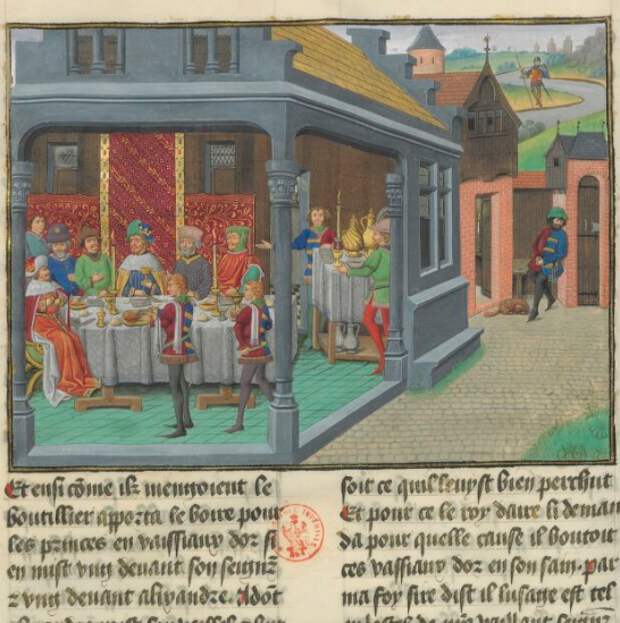 Et ensi cõme ilz mengoient le
boutillier apporta le boire pour
les princes en vaissiaux dor si
en mist vng deuant son seignr
z vng deuant alixandre. Adõt
soit ce quil leuyst bien perchut
Et pour ce le roy daire li deman
da pour quelle cause il boutoit
ces vassiaux dor en son sain. par
ma foy sire dist il lusaige est tel